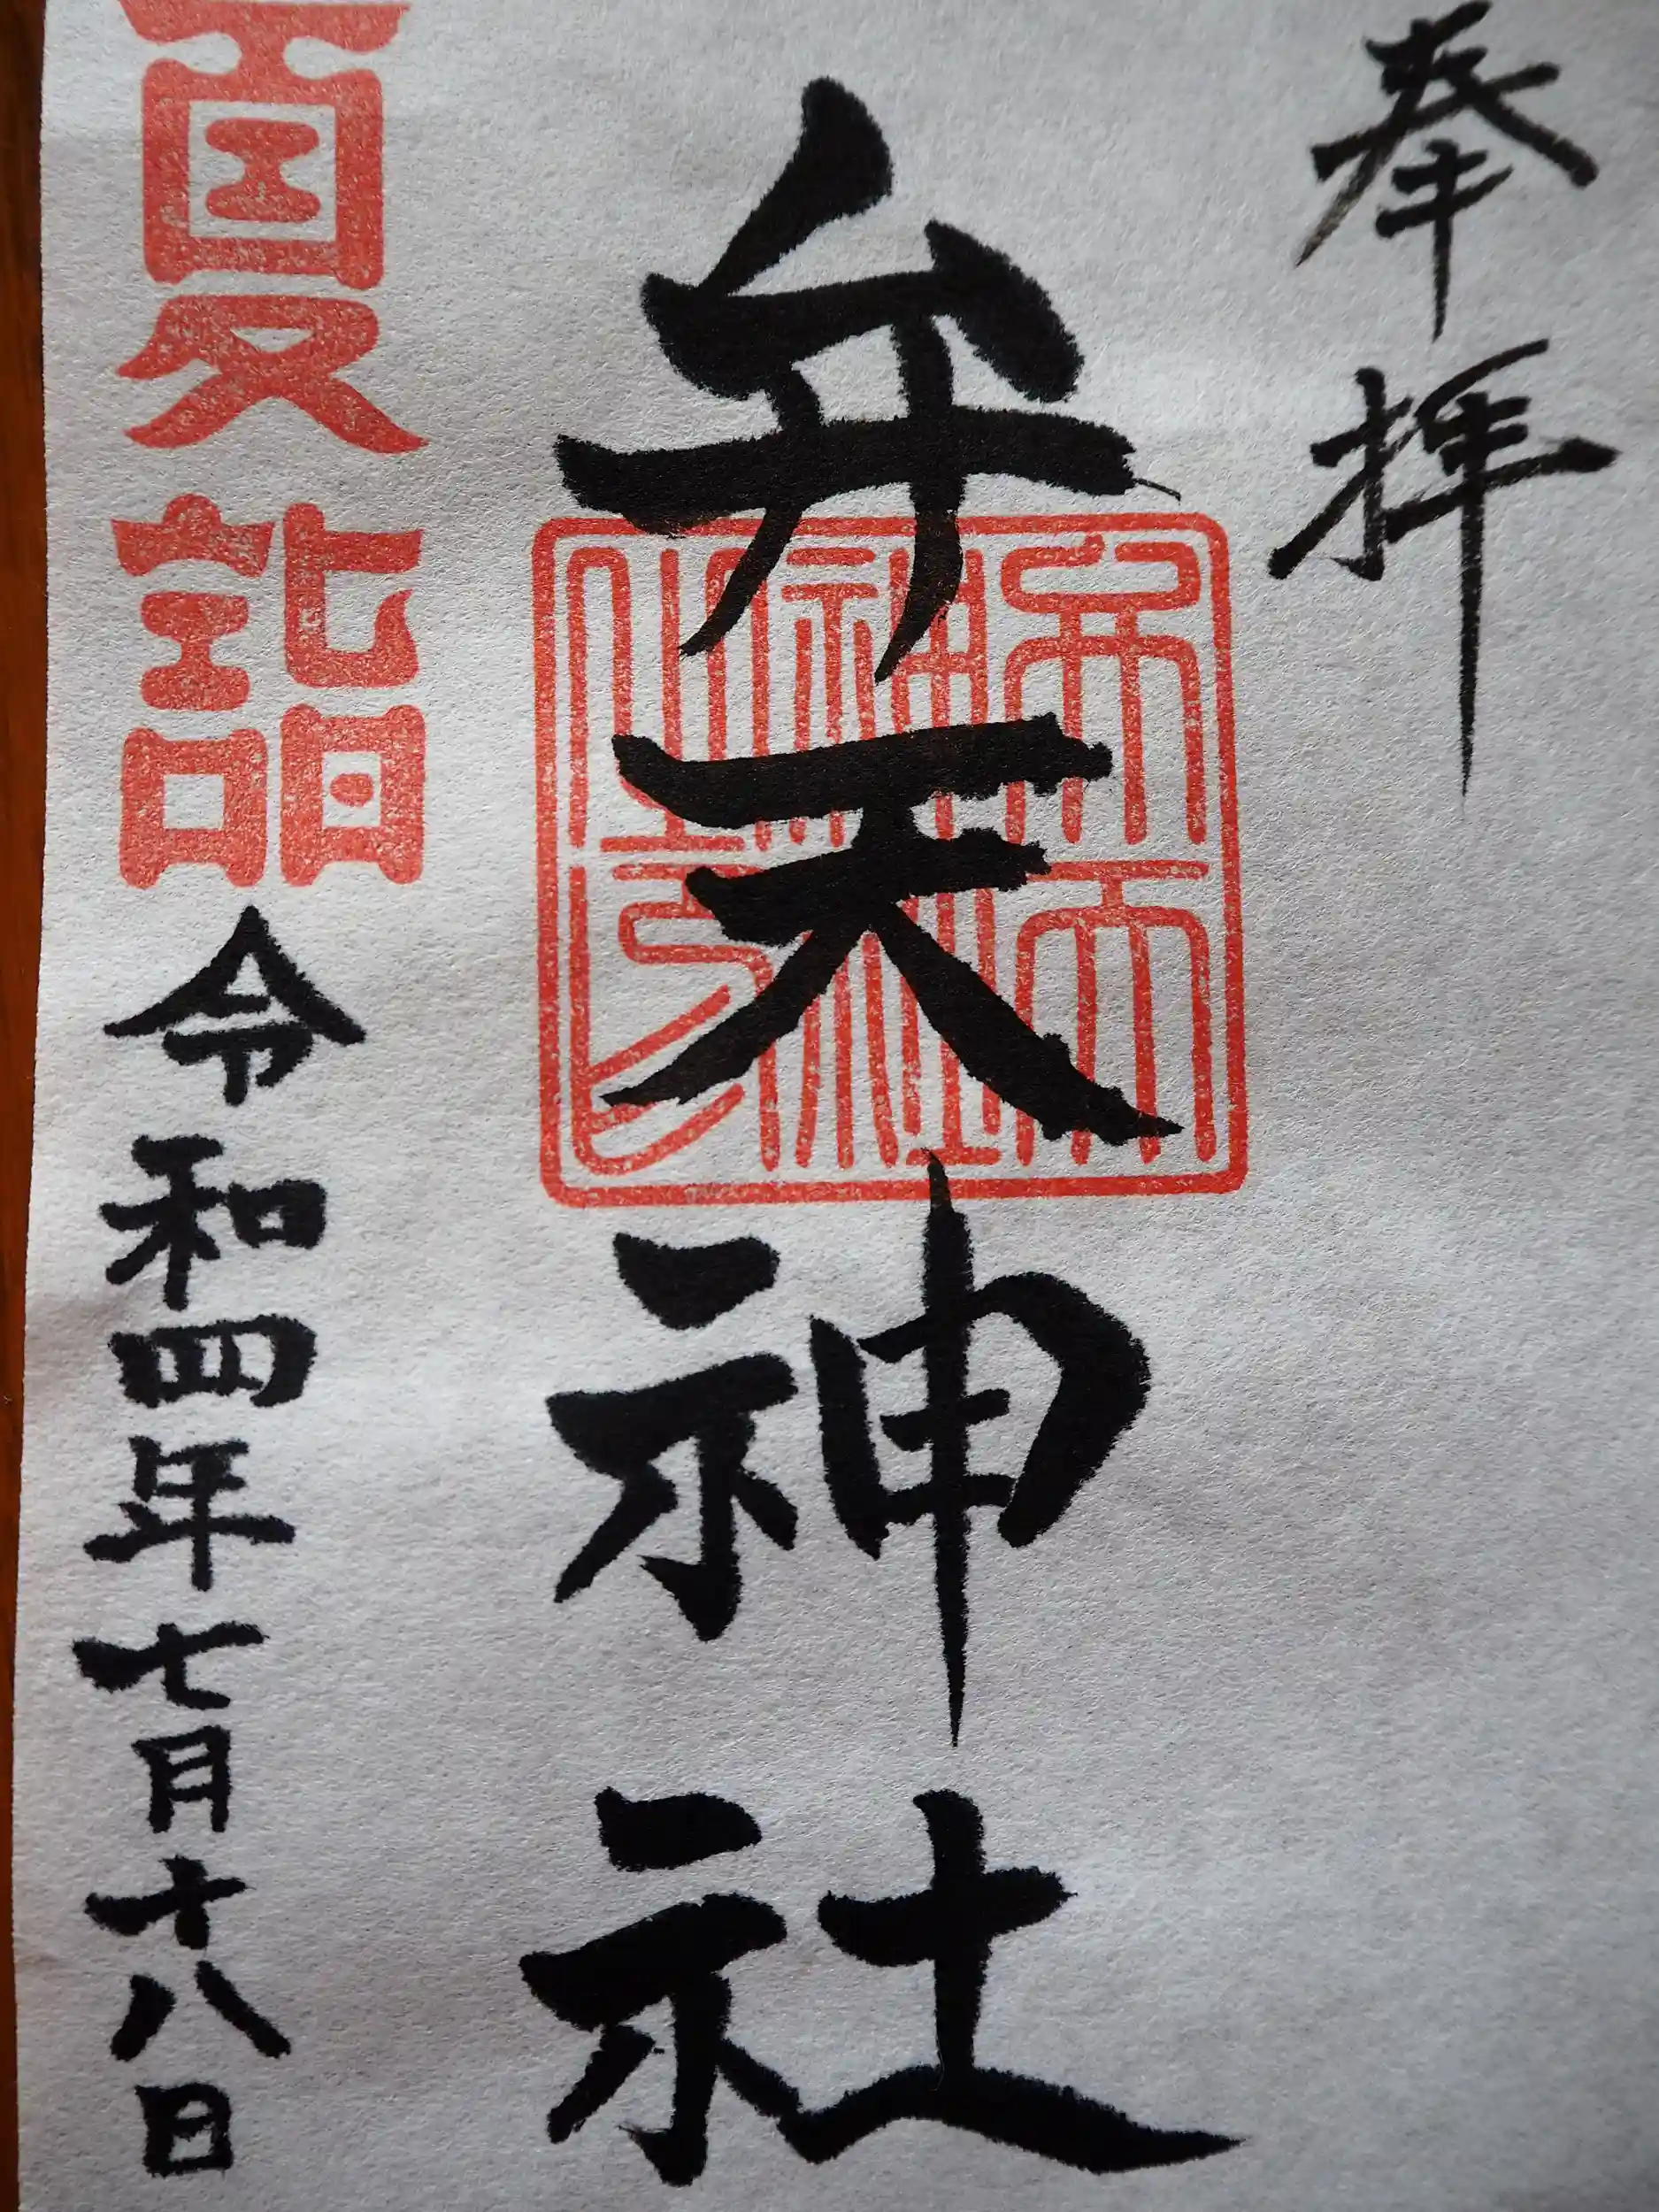 奉拝
弁天神社
弁天
神社
之印
夏詣
令和四年七月十八日